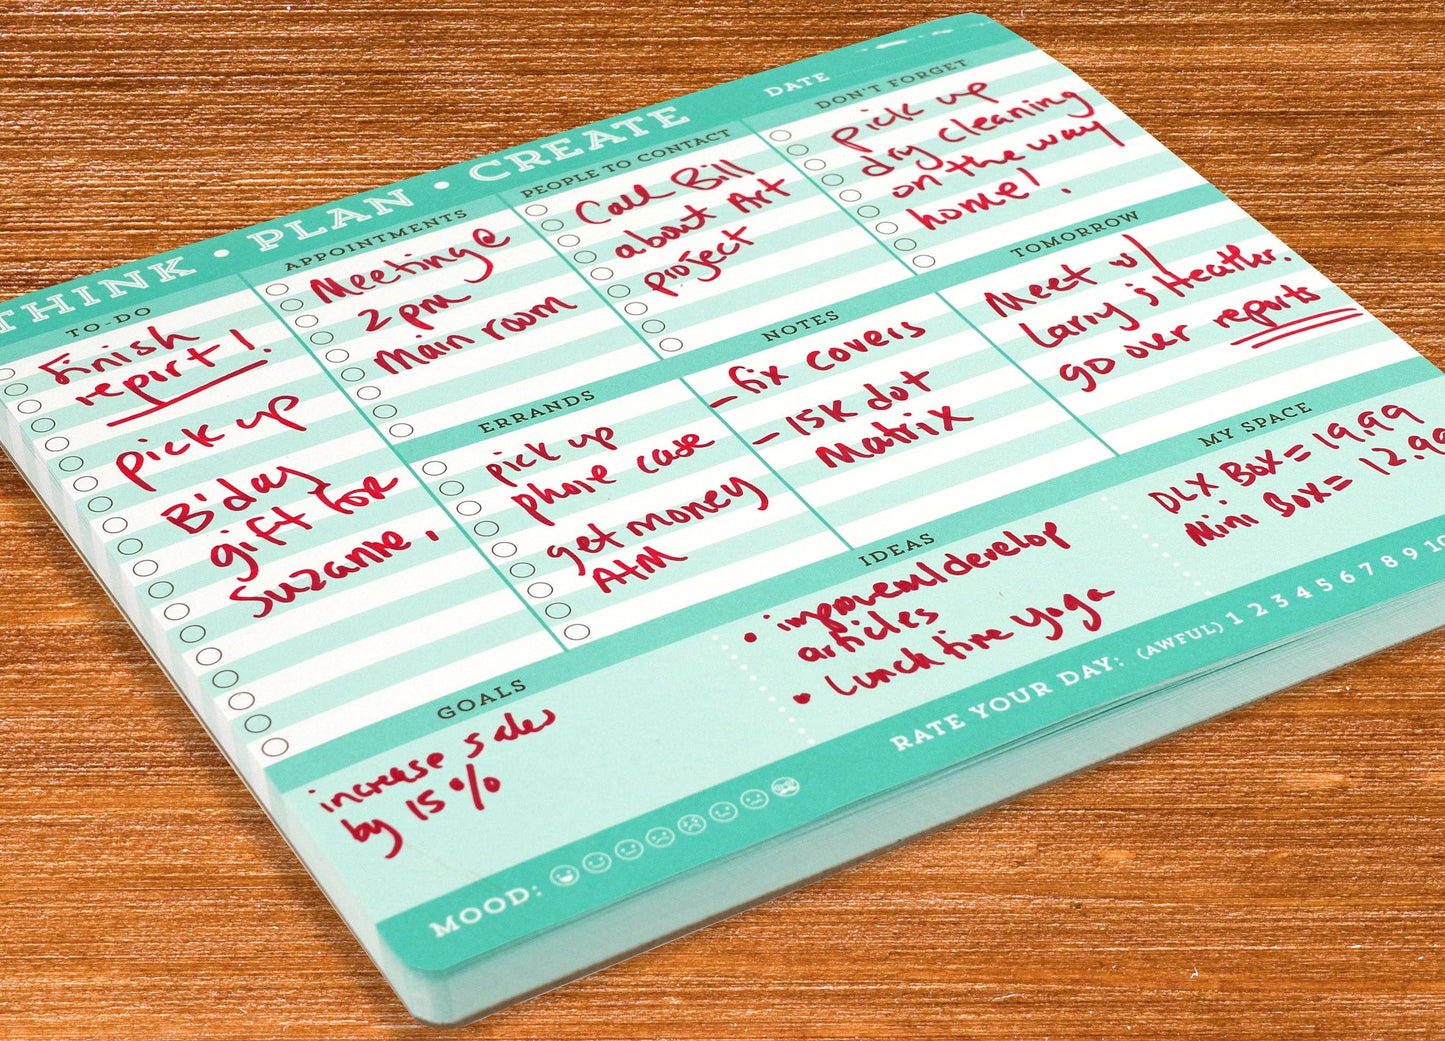 THINK • PLAN • CREATE
DATE
TO-DO
Finish
repirt!
pick up
B'day
gift for
Suzanne,
APPOINTMENTS
Meeting @
2 pm
Main room
PEOPLE TO CONTACT
Call Bill
about Art
project
DON'T FORGET
Pick up
dry cleaning
on the way
home!
ERRANDS
pick up
phone case
get money
ATM
NOTES
- fix covers
- 15K dot
Matrix
TOMORROW
Meet w/
Larry & Heather.
go over reports
GOALS
increase sales
by 15%
IDEAS
• improvem/develop
articles
• Lunch time yoga
MY SPACE
DLX Box = 19.99
Mini Box = 12.99
MOOD:
RATE YOUR DAY: (AWFUL) 1 2 3 4 5 6 7 8 9 10